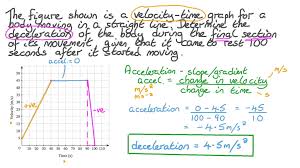 The figure shown is a velocity-time graph for a
body moving in a straight line. Determine the
deceleration of the body during the final section
of its movement, given that it came to rest 100
seconds after it started moving.
accel = 0
Acceleration - slope/gradient
accel. = change in velocity
change in time
m/s
s
m/s²
m/s²
acceleration = 0 - 45 = -45
100 - 90 10
= -4.5 m/s²
deceleration = 4.5 m/s²
+ve
-ve
Velocity (m/s)
50
40
30
20
10
0
10 20 30 40 50 60 70 80 90 100
Time (s)